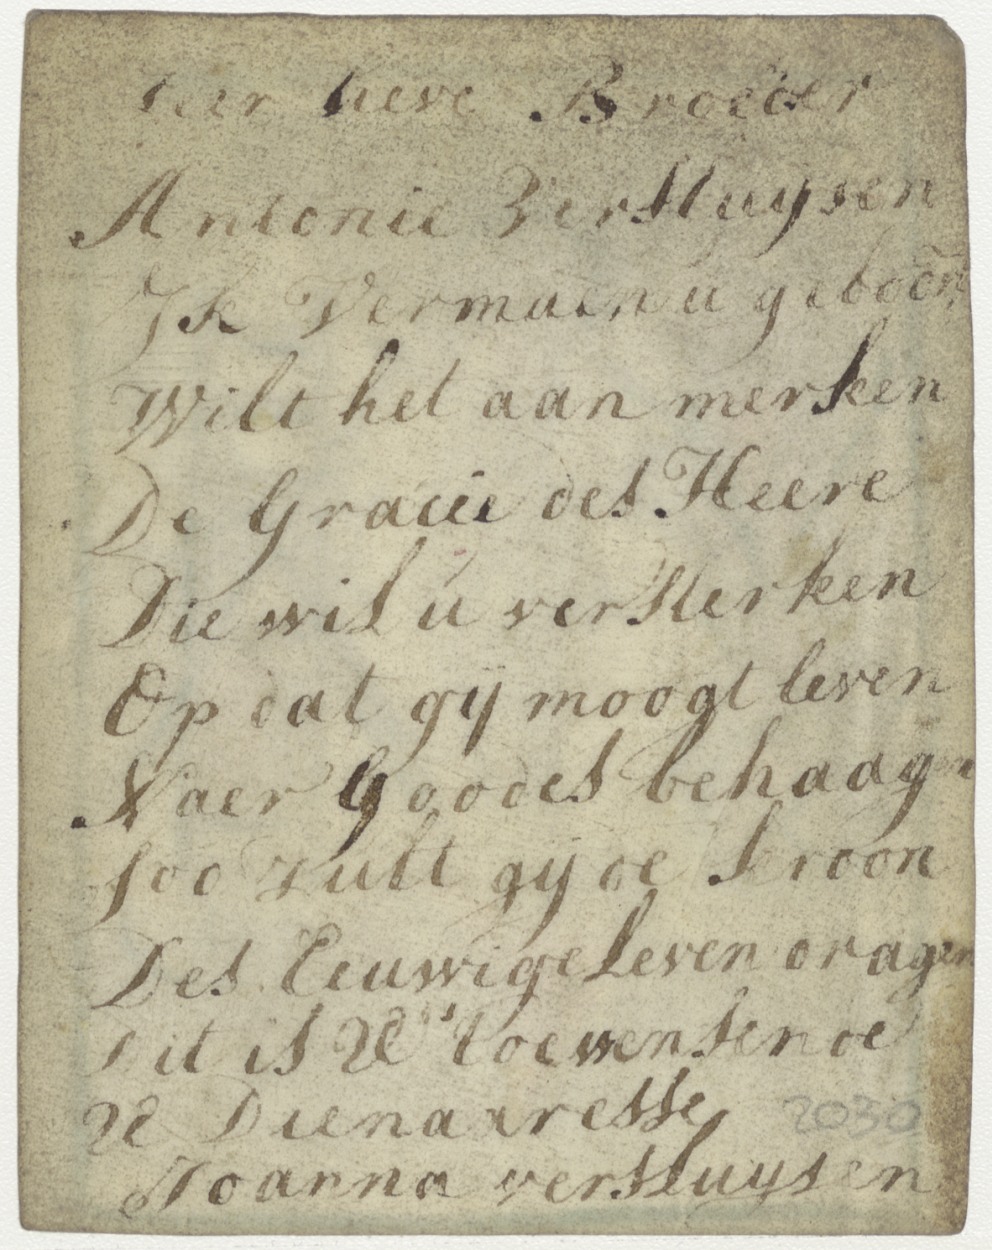 seer lieve Broeder
Antonie Versluysen
Ik Vermaen u geboen
Wilt het aan merken
De Gracie des Heere
Die wil u versterken
Op dat gij moogt leven
Naer Goodes behaagen
soo zult gij de kroon
Des Eeuwige Leven dragen
dit is UE toewensende
UE Dienaaresse
Joanna versluysen
2030